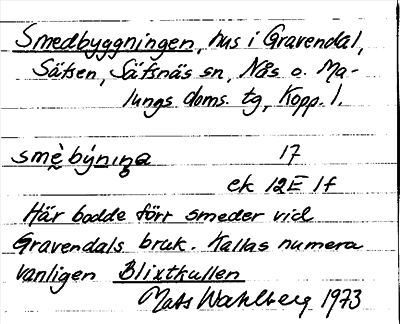 Smedbyggningen, hus i Gravendal,
Säfsen, Säfsnäs sn, Nås o. Ma-
lungs doms. tg, Kopp. l.
smè̤ býniŋa 17
ek 12E 1f
Här bodde förr smeder vid
Gravendals bruk. Kallas numera
vanligen Blixtkullen
Mats Wahlberg 1973